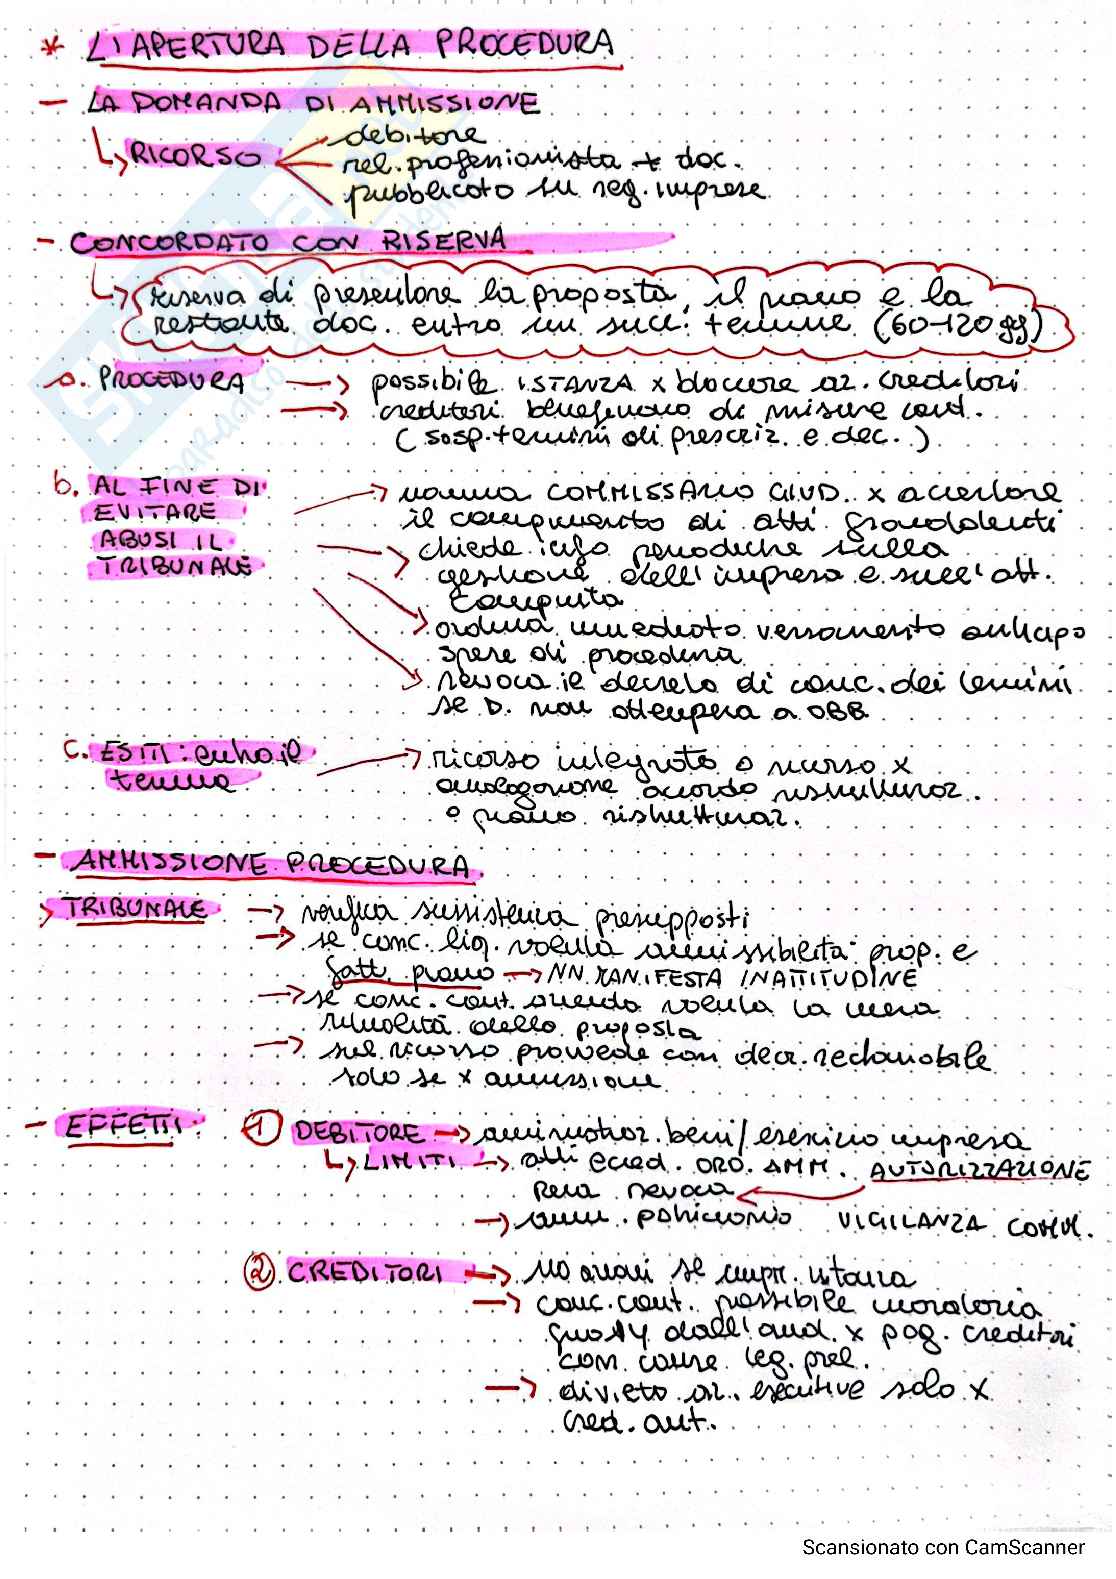 * L'APERTURA DELLA PROCEDURA
- LA DOMANDA DI AMMISSIONE
↳ RICORSO
debitore
rel. professionista + doc.
pubblicato su reg. imprese
- CONCORDATO CON RISERVA
↳ riserva di presentare la proposta, il piano e la
restante doc. entro un succ. termine (60-120 gg)
a. PROCEDURA → possibile ISTANZA x bloccare az. creditori
→ creditori beneficiano di misure caut.
(sosp. termini di prescriz. e dec.)
b. AL FINE DI
EVITARE
ABUSI IL
TRIBUNALE
→ nomina COMMISSARIO GIUD. x accertare
il compimento di atti fraudolenti
→ chiede info periodiche sulla
gestione dell'impresa e sull'att.
compiuta
→ ordina immediato versamento anticipo
spese di procedura
→ revoca il decreto di conc. dei termini
se D. non ottempera a OBB.
c. ESITI: entro il
termine
→ ricorso integrato o ricorso x
omologazione accordo ristrutturaz.
o piano ristrutturaz.
- AMMISSIONE PROCEDURA
> TRIBUNALE → verifica sussistenza presupposti
→ se conc. liq. valuta ammissibilità prop. e
fatt. piano → NN MANIFESTA INATTITUDINE
→ se conc. cont. azienda valuta la mera
ritualità della proposta
→ sul ricorso provvede con decr. reclamabile
solo se x ammissione
- EFFETTI: ① DEBITORE → amministraz. beni/esercizio impresa
↳ LIMITI → atti ecced. ORD. AMM. AUTORIZZAZIONE
pena revoca
→ amm. patrimonio VIGILANZA COMM.
② CREDITORI → no azioni se impr. istanza
→ conc. cont. possibile moratoria
dall' x pag. creditori
con cause leg. prel.
→ divieto az. esecutive solo x
cred. ant.
Scansionato con CamScanner